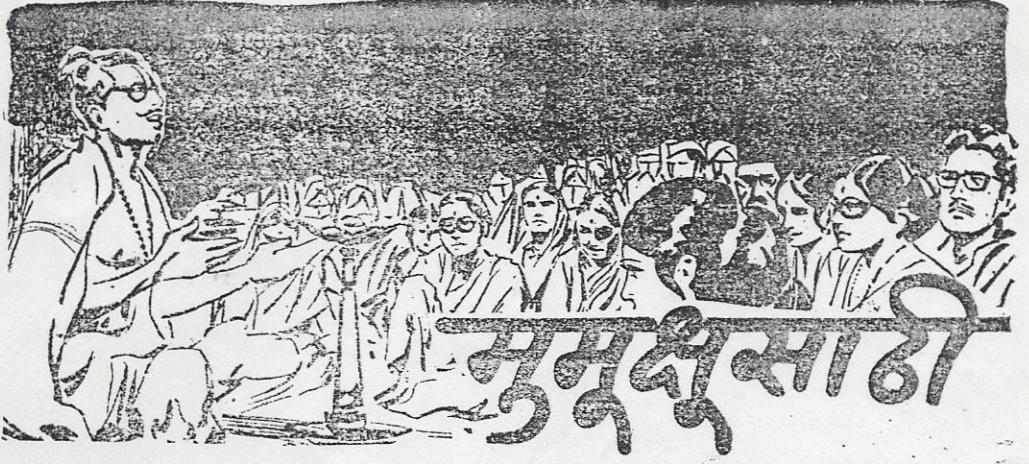 मुमुक्षूसाठी